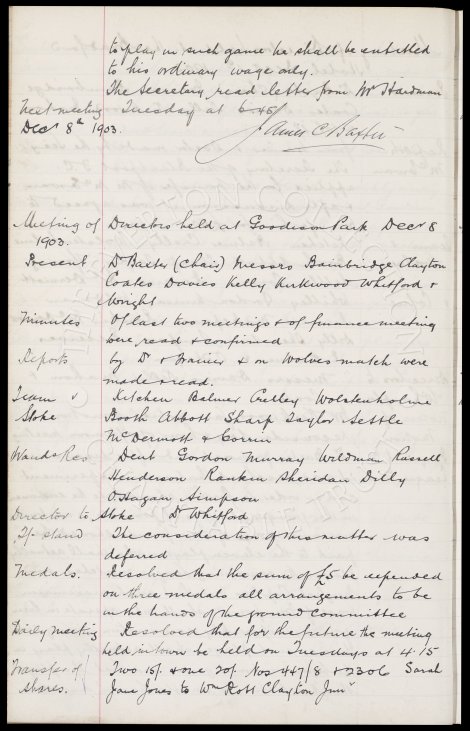 to play in such game he shall be entitled
to his ordinary wage only.
The Secretary read letter from Mr Hardman
Next meeting Tuesday at 6.45
Decr 8th 1903.
James C Baxter
Meeting of Directors held at Goodison Park Decr 8
1903.
Present Dr Baxter (Chair) Messrs Bainbridge Clayton
Coates Davies Kelly Kirkwood Whitford &
Wright
Minutes Of last two meetings & of finance meeting
were read & confirmed
Reports by Dr & Trainer & on Wolves match were
made & read.
Team v Kitchen Balmer Crelley Wolstenholme
Stoke Booth Abbott Sharp Taylor Settle
McDermott & Corrin
Dent Gordon Murray Wildman Russell
Henderson Rankin Sheridan Dilly
O'Hagan Simpson
Director to Stoke Dr Whitford
stand The consideration of this matter was
deferred
Medals. Resolved that the sum of £5 be expended
on three medals all arrangements to be
in the hands of the ground Committee
Daily Meeting Resolved that for the future the meeting
held in town be held on Tuesdays at 4.15
Transfer of Two 15/- & one 20/- Nos 447/8 & 2306 Sarah
shares. Jane Jones to Wm Clayton Junr